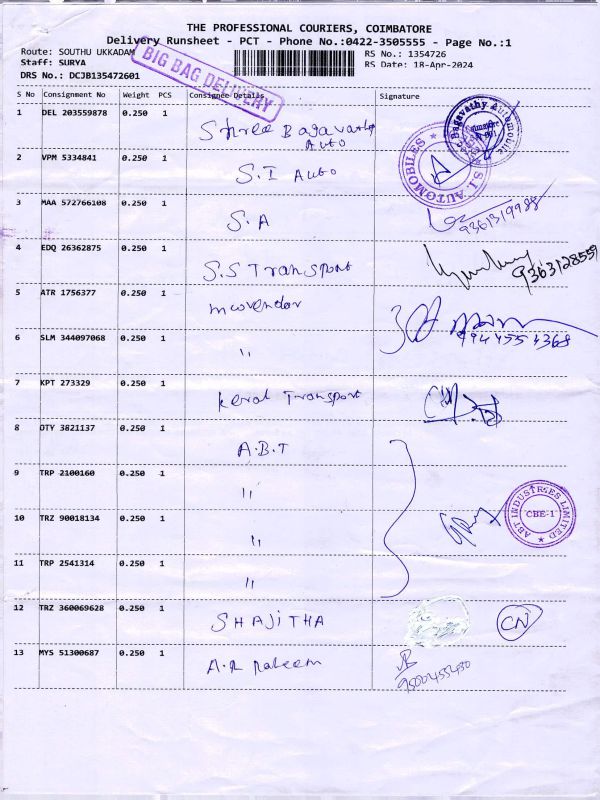 THE PROFESSIONAL COURIERS, COIMBATORE
Delivery Runsheet - PCT - Phone No.:0422-3505555 - Page No.:1
Route: SOUTHU UKKADAM
RS No.: 1354726
Staff: SURYA
RS Date: 18-Apr-2024
DRS No.: DCJB135472601
BIG BAG DELIVERY
S No Consignment No Weight PCS Consignee Details Signature
1 DEL 203559878 0.250 1 Shree Bagavathy Auto
Bagavathy Automobile
2 VPM 5334841 0.250 1 S.I Auto
S.I. AUTOMOBILES
3 MAA 572766108 0.250 1 S.A
9361319988
4 EDQ 26362875 0.250 1 S.S Transport
9363128559
5 ATR 1756377 0.250 1 Moovendar
6 SLM 344097068 0.250 1 "
7 KPT 273329 0.250 1 Keral Transport
8 OTY 3821137 0.250 1 A.B.T
9 TRP 2100160 0.250 1 "
ABT INDUSTRIES LIMITED
CBE-1
10 TRZ 90018134 0.250 1 "
11 TRP 2541314 0.250 1 "
12 TRZ 360069628 0.250 1 SHAJITHA
CN
13 MYS 51300687 0.250 1 A.R Raheem